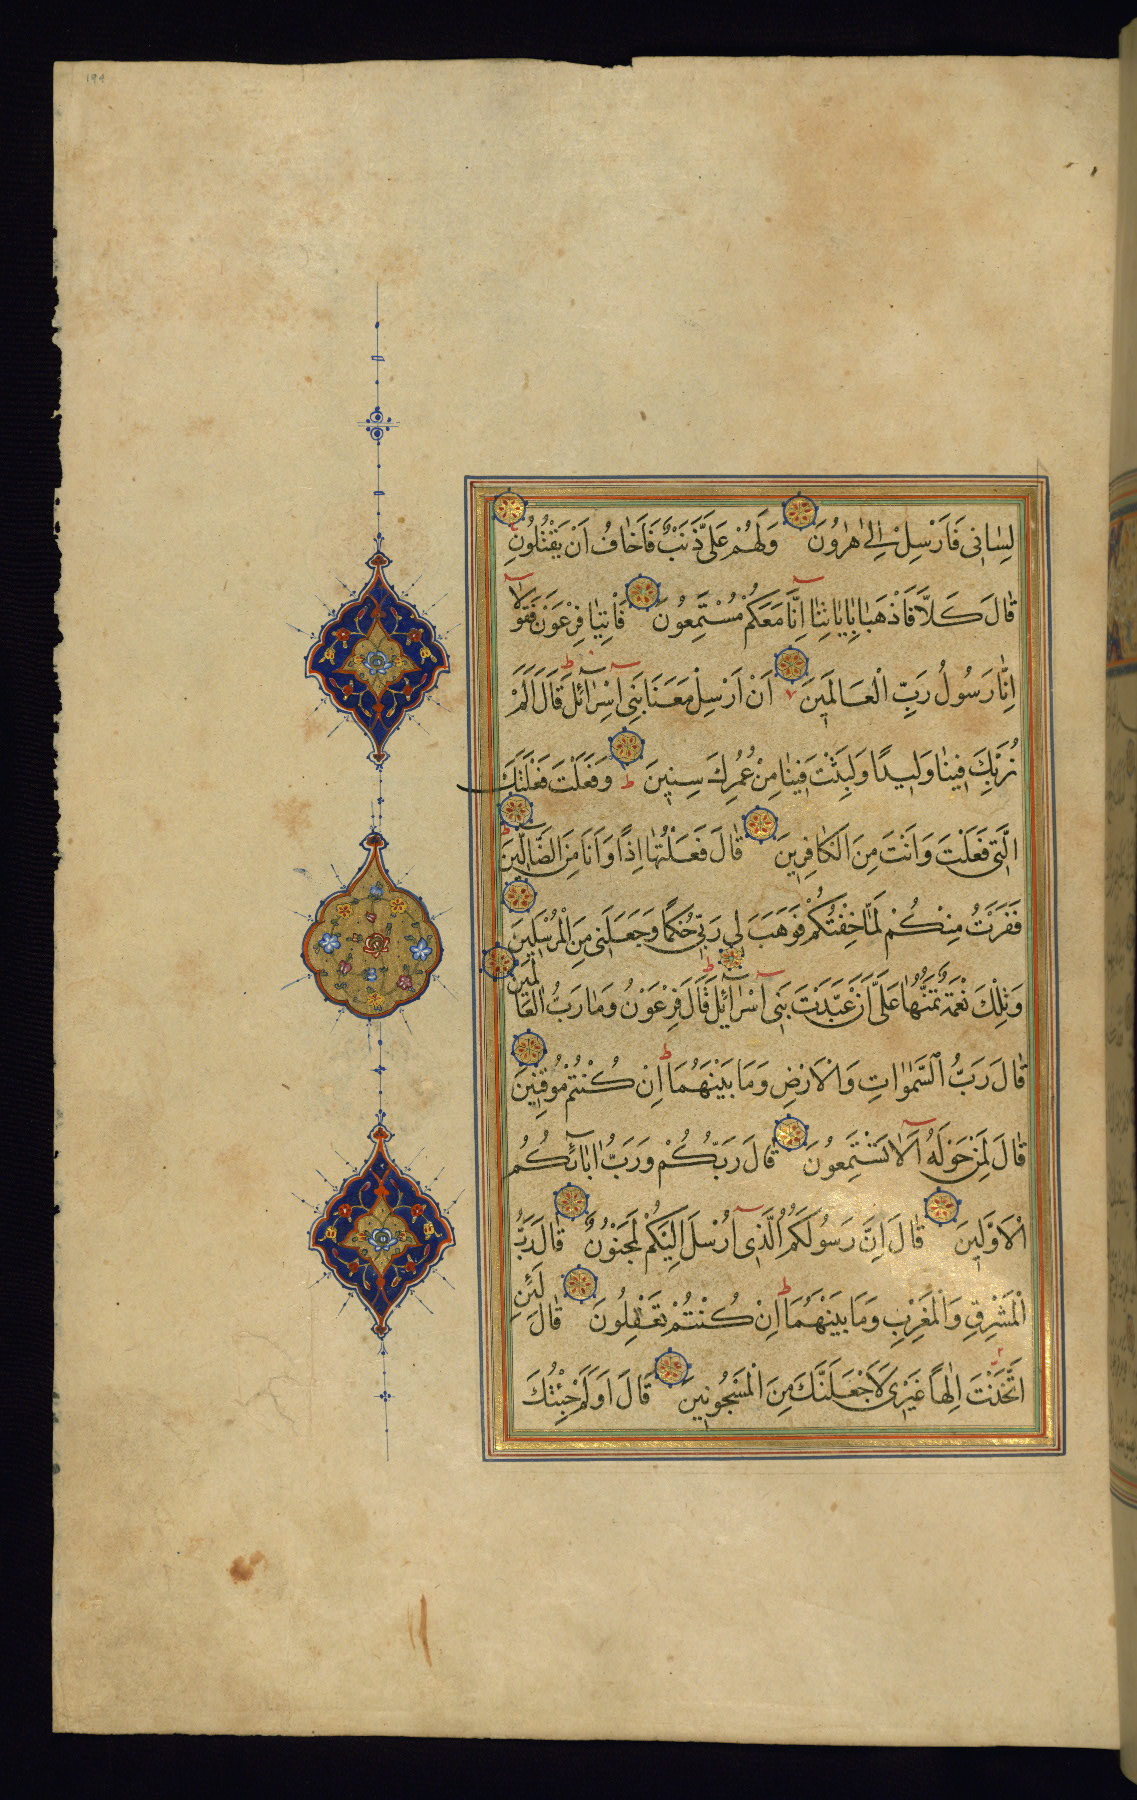 لِسَانِى فَاَرْسِلْ اِلٰى هٰرُونَ وَلَهُمْ عَلَىَّ ذَنْبٌ فَاَخَافُ اَنْ يَقْتُلُونِ
قَالَ كَلَّا فَاذْهَبَا بِاٰيَاتِنَا اِنَّا مَعَكُمْ مُسْتَمِعُونَ فَاْتِيَا فِرْعَوْنَ فَقُولَا
اِنَّا رَسُولُ رَبِّ الْعَالَمِينَ اَنْ اَرْسِلْ مَعَنَا بَنِى اِسْرَائِلَ قَالَ اَلَمْ
نُرَبِّكَ فِينَا وَلِيدًا وَلَبِثْتَ فِينَا مِنْ عُمُرِكَ سِنِينَ وَفَعَلْتَ فَعْلَتَكَ
الَّتِى فَعَلْتَ وَاَنْتَ مِنَ الْكَافِرِينَ قَالَ فَعَلْتُهَا اِذًا وَاَنَا مِنَ الضَّالِّينَ
فَفَرَرْتُ مِنْكُمْ لَمَّا خِفْتُكُمْ فَوَهَبَ لِى رَبِّى حُكْمًا وَجَعَلَنِى مِنَ الْمُرْسَلِينَ
وَتِلْكَ نِعْمَةٌ تَمُنُّهَا عَلَىَّ اَنْ عَبَّدْتَ بَنِى اِسْرَائِلَ قَالَ فِرْعَوْنُ وَمَا رَبُّ الْعَالَمِينَ
قَالَ رَبُّ السَّمٰوَاتِ وَالْاَرْضِ وَمَا بَيْنَهُمَا اِنْ كُنْتُمْ مُوقِنِينَ
قَالَ لِمَنْ حَوْلَهُ اَلَا تَسْتَمِعُونَ قَالَ رَبُّكُمْ وَرَبُّ اٰبَائِكُمُ
الْاَوَّلِينَ قَالَ اِنَّ رَسُولَكُمُ الَّذِى اُرْسِلَ اِلَيْكُمْ لَمَجْنُونٌ قَالَ رَبُّ
الْمَشْرِقِ وَالْمَغْرِبِ وَمَا بَيْنَهُمَا اِنْ كُنْتُمْ تَعْقِلُونَ قَالَ لَئِنِ
اتَّخَذْتَ اِلٰهًا غَيْرِى لَاَجْعَلَنَّكَ مِنَ الْمَسْجُونِينَ قَالَ اَوَلَوْ جِئْتُكَ